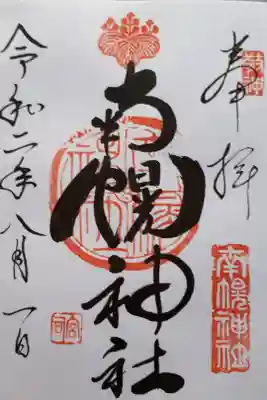 奉拝
南幌神社
令和二年八月一日
南幌神社
宮司